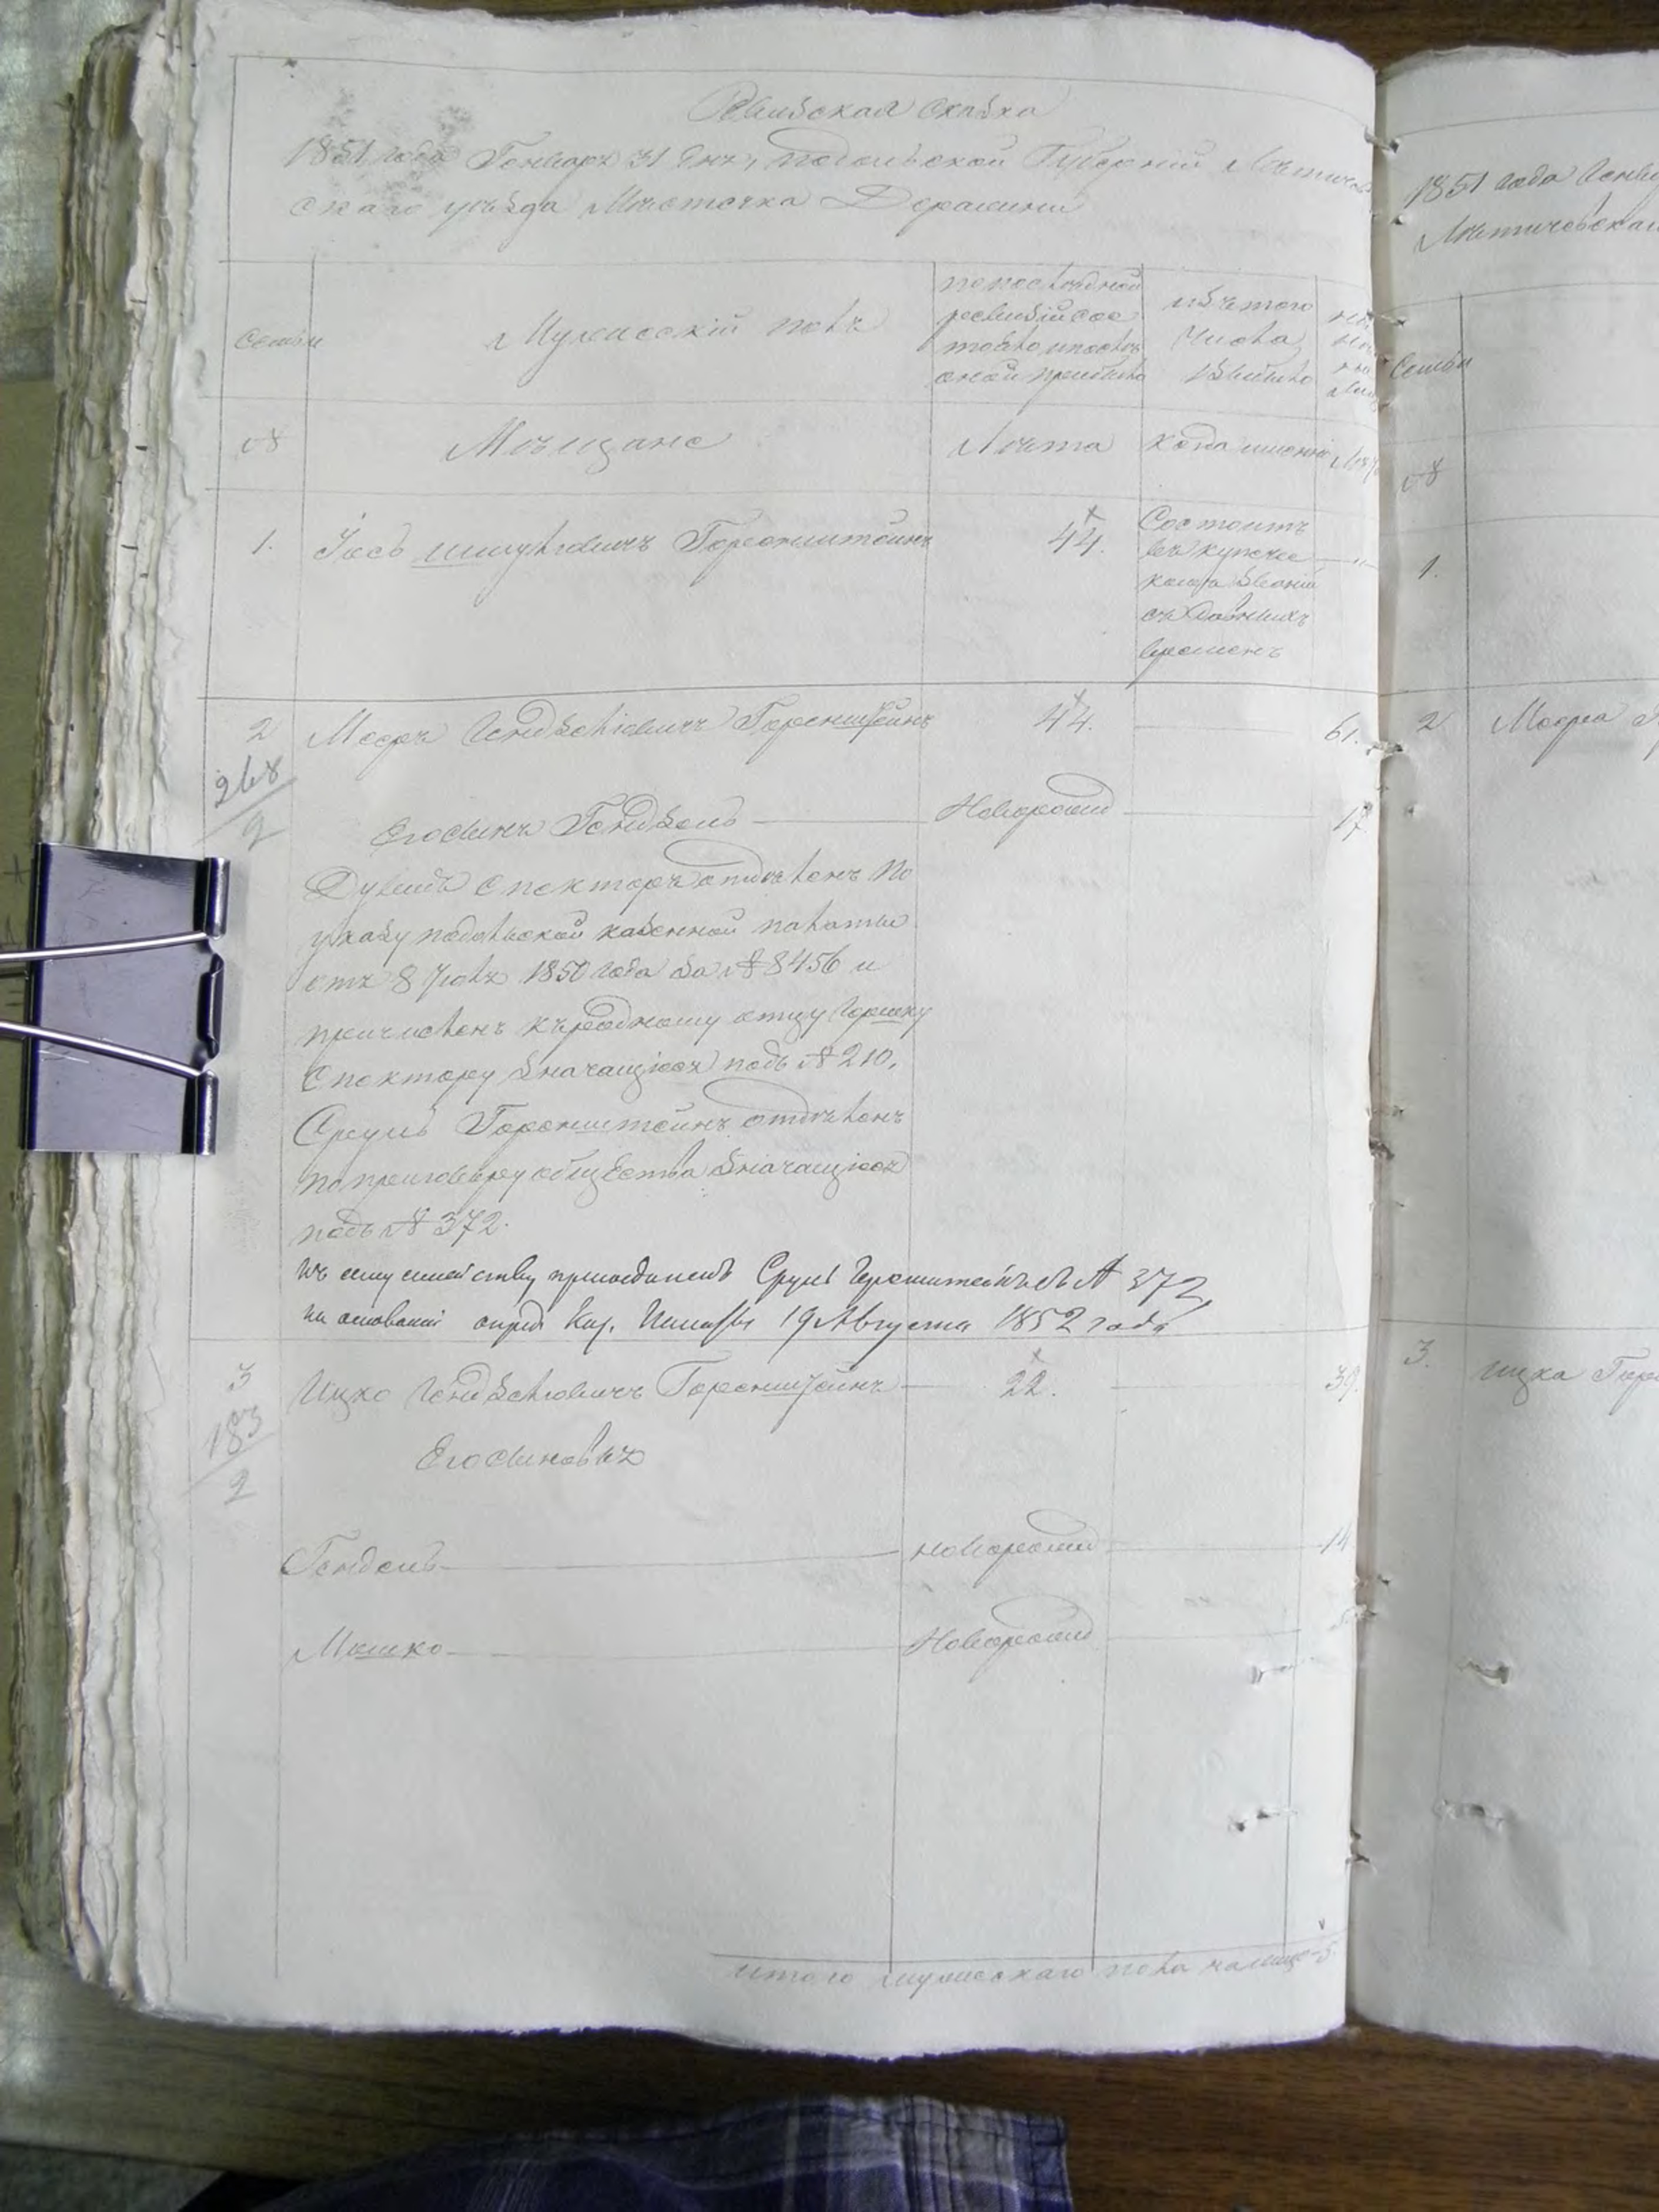 Ревизская сказка
1851 года Генваря 31 дня, подольской Губерніи Летичев
скаго уѣзда Мѣстечка Деражни
Семьи
Мужескій полъ
по последней
ревизіи сос
тояло и послѣ
оной прибыло
изъ того
Числа
выбыло
№
Мѣщане
Лѣта
когда именно
Лѣт
1.
Іось Шмулiовичъ Горенштейнъ
44.
Состоитъ
въ купече
скомъ званіи
съ давнихъ
временъ
2
Мееръ Гендзелiовичъ Горенштейнъ
44.
61.
268
2
Его сынъ Гендзель
Новорожд
17.
Дувидъ Спекторъ отдѣленъ по
указу подольской казенной палаты
отъ 8 Іюля 1850 года за № 8456 и
причисленъ къ родному отцу Гершку
Спектору значащіеся подъ № 210.
Сруль Горенштейнъ отдѣленъ
по приговору общества значащіеся
подъ № 372.
къ сему семейству присоединенъ Сруль Геренштейнъ съ № 372
на основаніи опред. Каз. Палаты 19 Августа 1852 года
3
Ицко Гендзелiовичъ Горенштейнъ
22.
39.
183
2
Его сыновья
Гендель
новорожд
14
Мошко
Новорожд
итого мужескаго пола налицо 5
1851 года Генв
Летичевска
Семьи
№
1.
2
Меера
3.
Ицка Горе